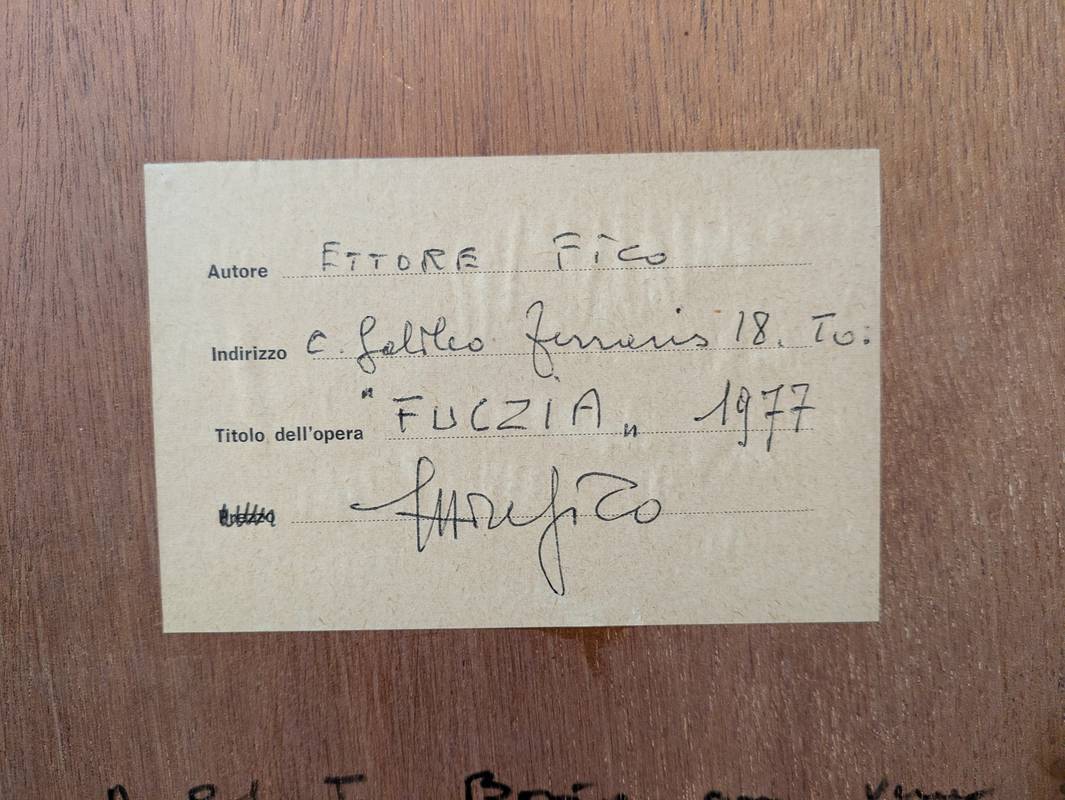 Autore ETTORE Fico
Indirizzo C. Galileo Ferraris 18. To:
Titolo dell'opera "FUCZIA" 1977
Prezzo Ettore Fico